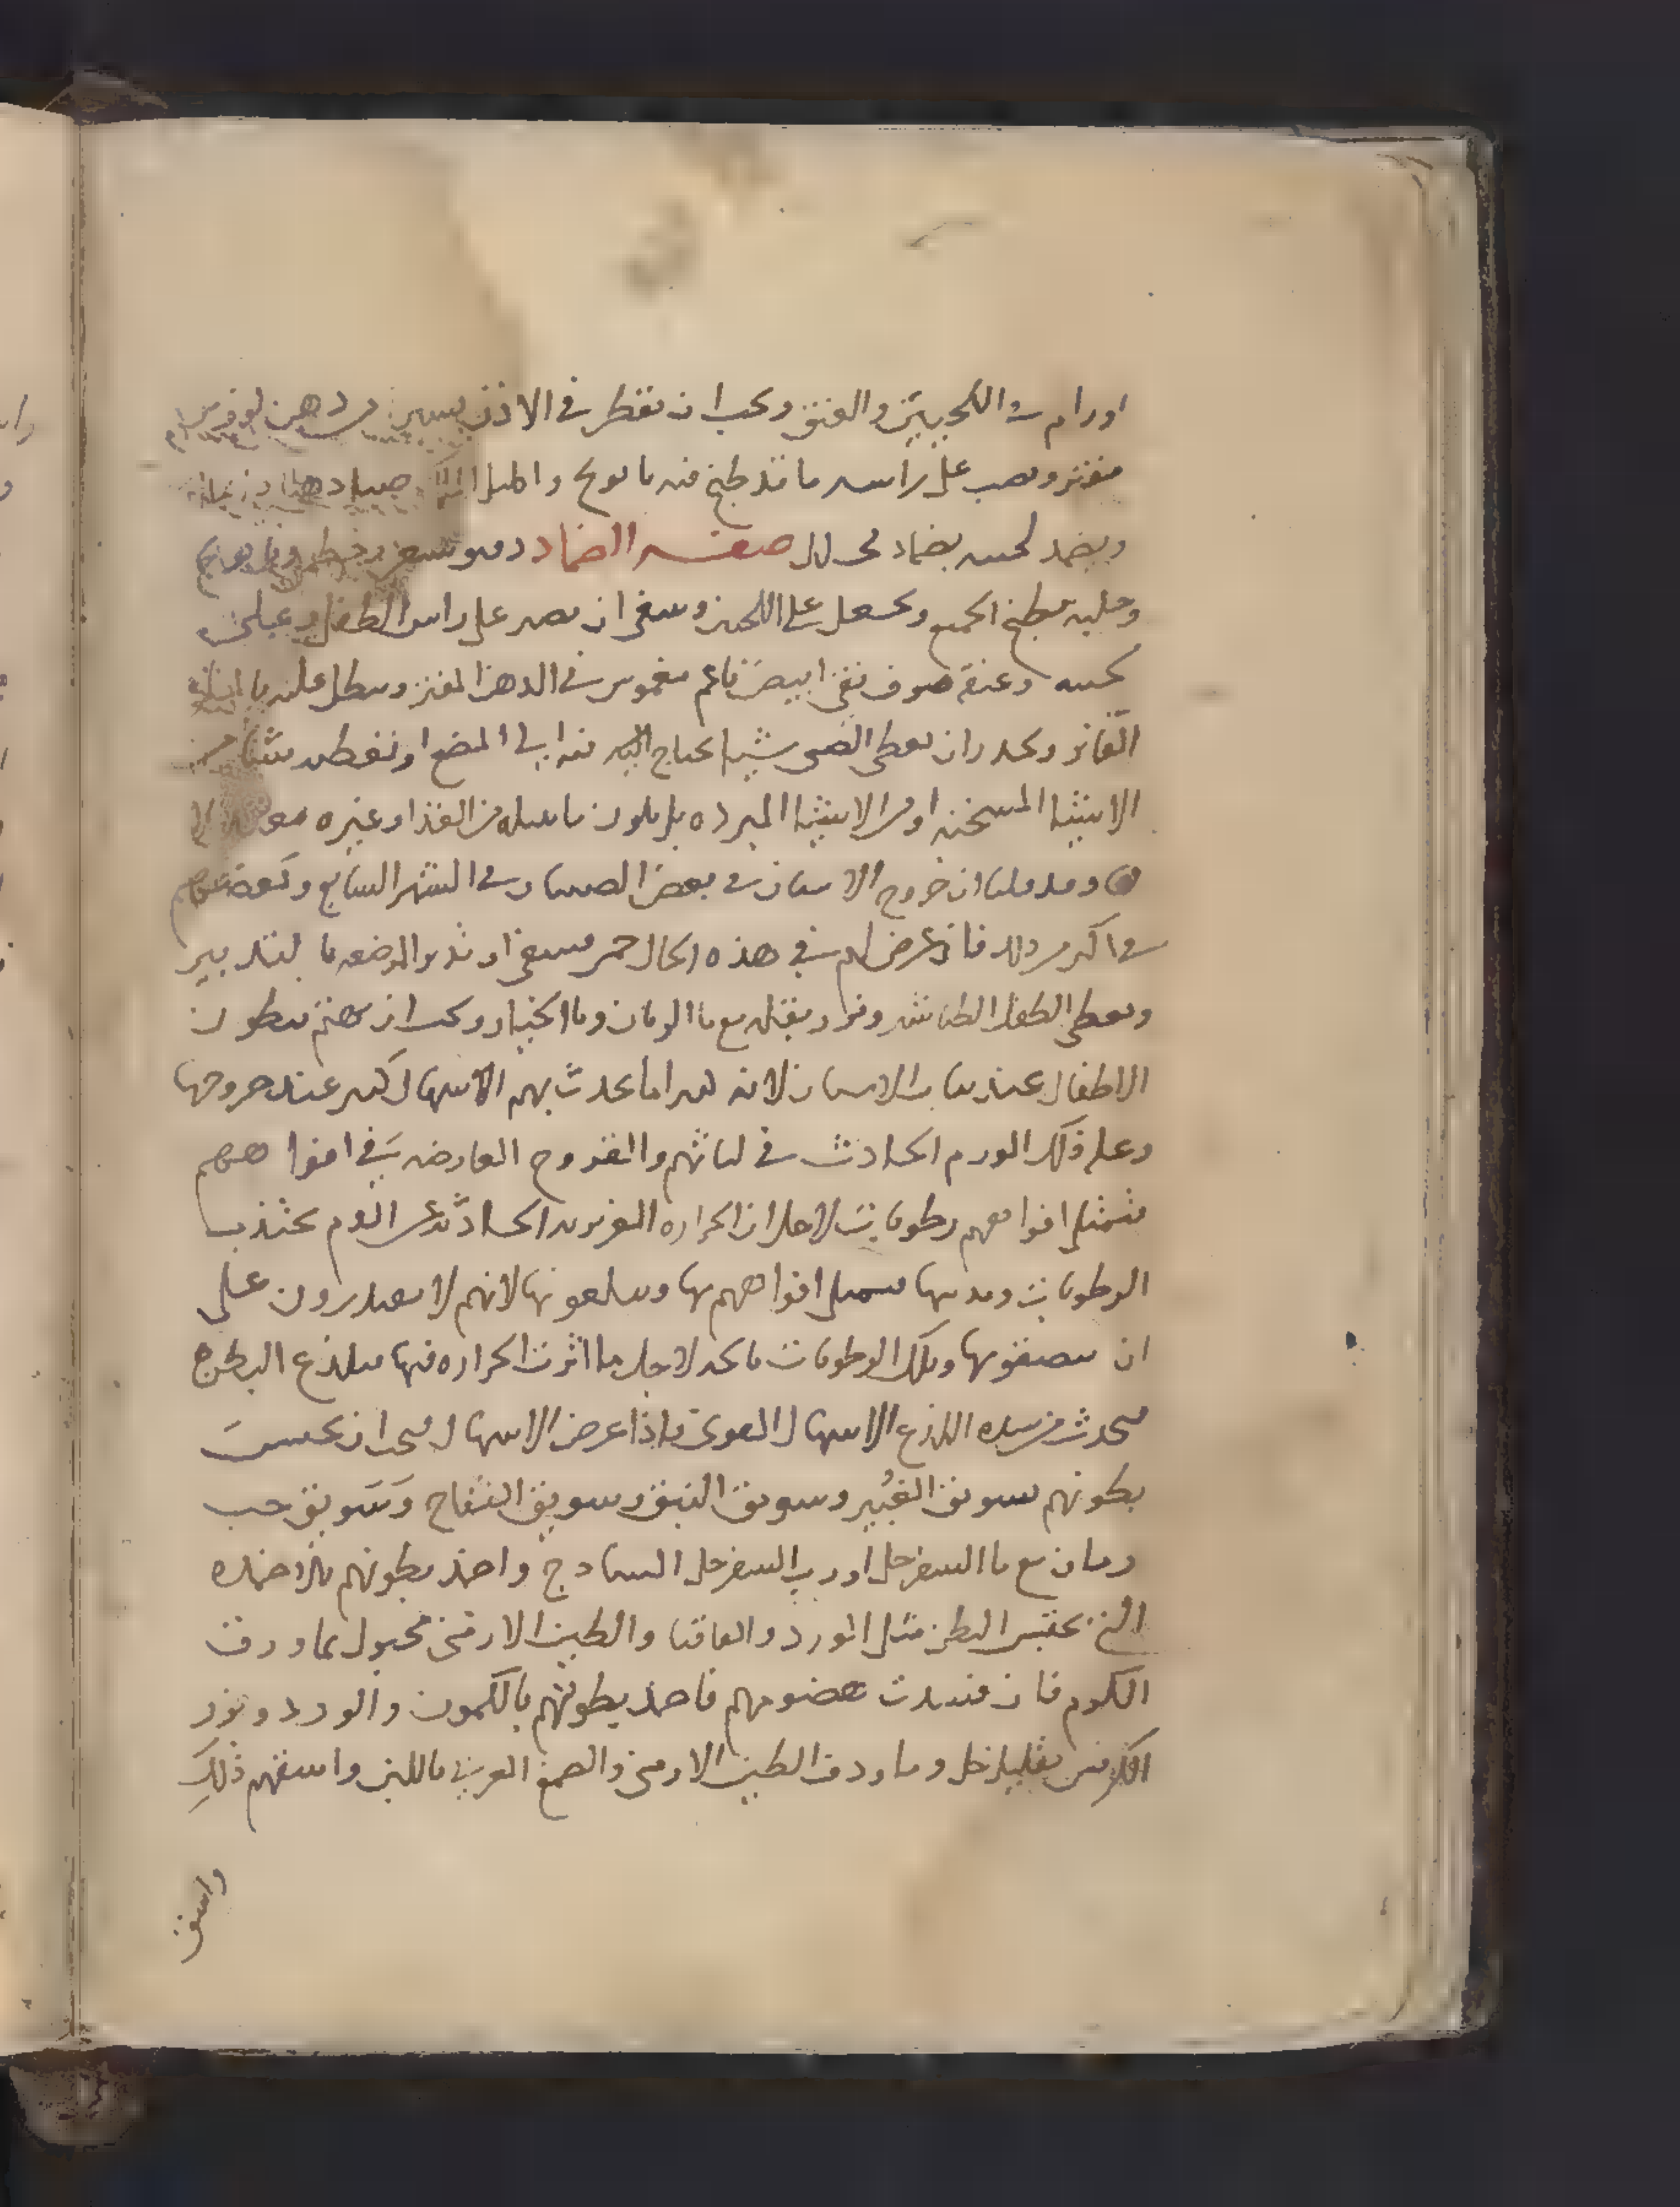 اورام في اللحيين والعنق ويجب ان يقطر في الاذن يسير من دهن
مفتر ويصب على راسه ما قد طبخ فيه بابونج واكليل الملك
ويضمد لحييه بضماد محلل صفة الضماد دقيق شعير وخطمي وبابونج
وحلبه يطبخ الجميع ويجعل على اللحيين وينبغي ان يصير على راس الطفل وعلى
لحييه وعنقه صوف نقي ابيض ناعم مغموس في الدهن المفتر وينطل عليه بالماء
الفاتر ويحذر ان يعطى الصبي شيا يحتاج اليه فيه الى المضغ او نعطيه شيا من
الاشيا المسخنه او من الاشيا المبرده بل يكون ما يناله من الغذا وغيره
وقد قلنا ان خروج الاسنان في بعض الصبيان في الشهر السابع وبعضهم
في اكثر من ذلك فان عرض لهم في هذه الحال حمى فينبغي ان تدبر المرضعه بالتدبير
ويعطى الطفل الطباشير وبزر بقله مع ما الرمان وما الخيار ويجب ان يهتم ببطون
الاطفال عند نبات الاسنان لانه كثيرا ما يحدث بهم الاسهال الكثير عند خروجها
وعلة ذلك الورم الحادث في لثاتهم والقروح العارضه في افواههم
فتمتلى افواههم رطوبات لاجل ان الحراره الغريبه الحادثه عن الورم تجذب
الرطوبات وتذيبها فتمتلى افواههم بها ويبلعونها لانهم لا يقدرون على
ان يبصقوها وتلك الرطوبات ماكه لاجل ما اثرت الحراره فيها فيلذع البطن
فيحدث من شده اللذع الاسهال القوي فاذا عرض الاسهال فيجب ان تحبس
بطونهم بسويق الغبير وسويق النبق وسويق التفاح وسويق حب
رمان مع ما السفرجل او رب السفرجل السادج واضمد بطونهم بالاضمده
التي تحبس البطن مثل الورد والقاقيا والطين الارمني مجبول بما ورق
الكرم فان فسدت هضومهم فاضمد بطونهم بالكمون والورد وبزر
الكرفس بقليل خل وما ورد والطين الارمني والصمغ العربي باللبن واسقهم ذلك
واسق